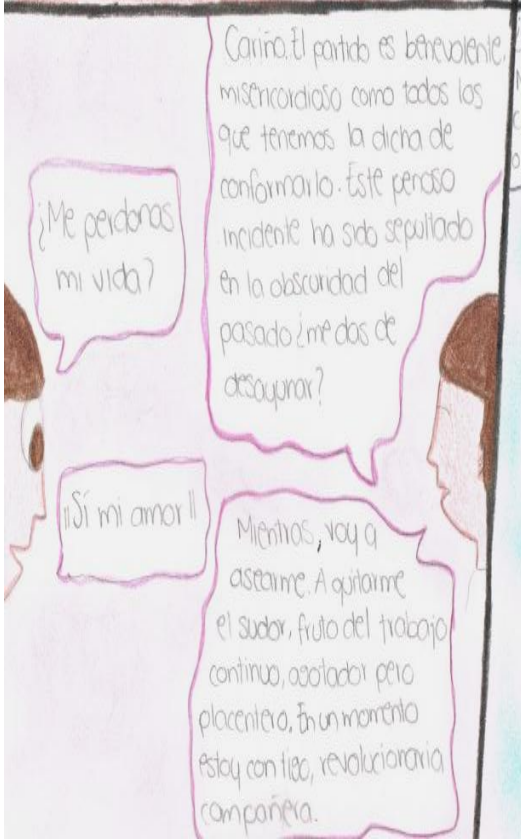 ¿Me perdonas
mi vida?
Cariño. El partido es benevolente,
misericordioso como todos los
que tenemos la dicha de
conformarlo. Este penoso
incidente ha sido sepultado
en la obscuridad del
pasado ¿me das de
desayunar?
"Sí mi amor"
Mientras, voy a
asearme. A quitarme
el sudor, fruto del trabajo
continuo, agotador pero
placentero. En un momento
estoy contigo, revolucionaria
compañera.